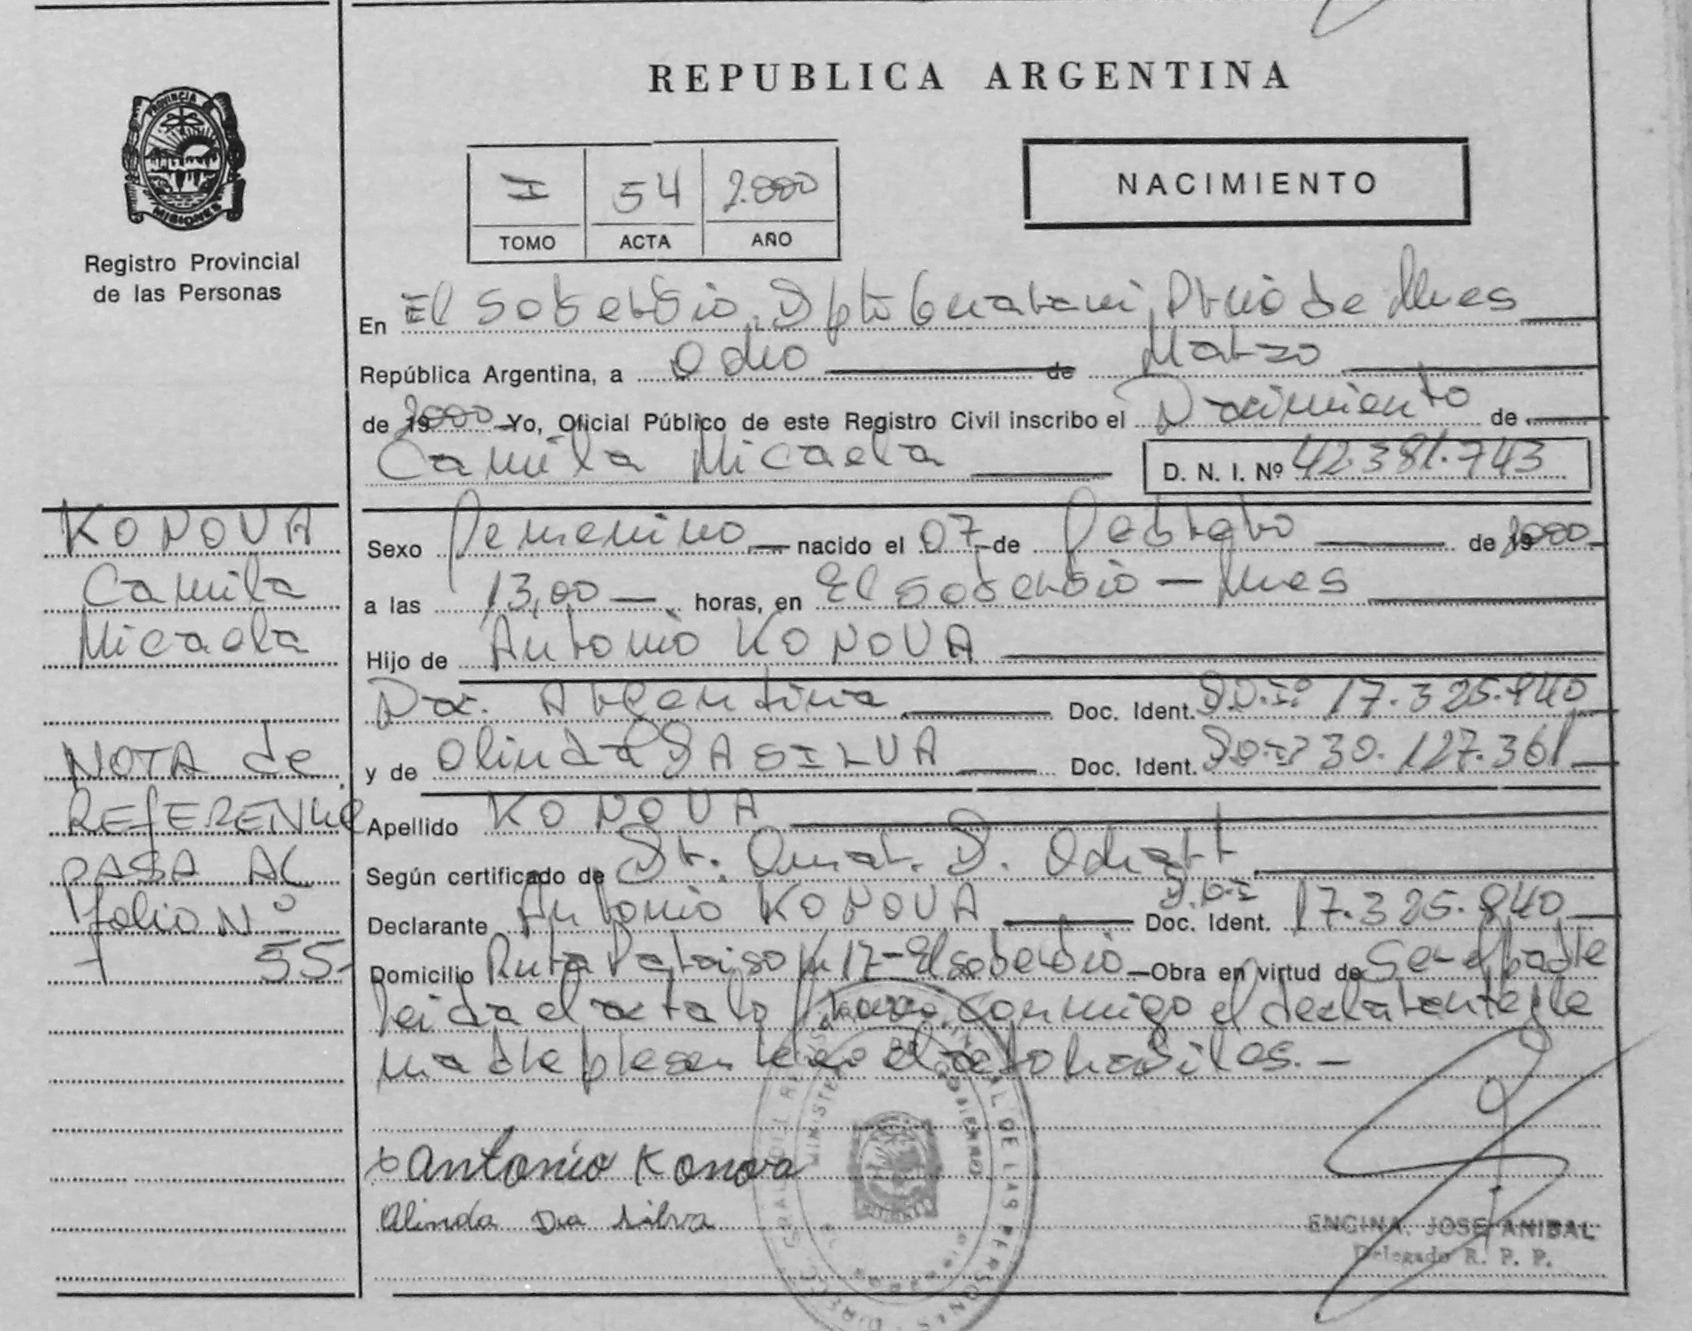 REPUBLICA ARGENTINA
PROVINCIA
MISIONES
Registro Provincial
de las Personas
I 54 2.000
TOMO ACTA AÑO
NACIMIENTO
En El Soberbio, Dpto Guarani, Pcia de Mnes
República Argentina, a Ocho de Marzo
de 2000 Yo, Oficial Público de este Registro Civil inscribo el Nacimiento de
Camila Micaela D. N. I. Nº 42.381.743
KONOVA
Camila
Micaela
NOTA de
REFERENCIA
PASA AL
folio Nº
55-
Sexo Femenino nacido el 07 de Febrero de 2000
a las 13,00 horas, en El Soberbio - Mnes
Hijo de Antonio KONOVA
Nac. Argentina Doc. Ident. D.N.I. 17.325.840
y de Olinda DA SILVA Doc. Ident. D.N.I. 30.127.361
Apellido KONOVA
Según certificado de Dr. Omar. D.
Declarante Antonio KONOVA Doc. Ident. D.N.I 17.325.840
Domicilio Ruta Paraiso Km 17 - El Soberbio - Obra en virtud de Ser el padre
leida el acta la firman conmigo el declarante y la
madre presente en el acto habiles. -
Antonio Konova
Olinda Da Silva
ENCINA. JOSE ANIBAL
Delegado R. P. P.